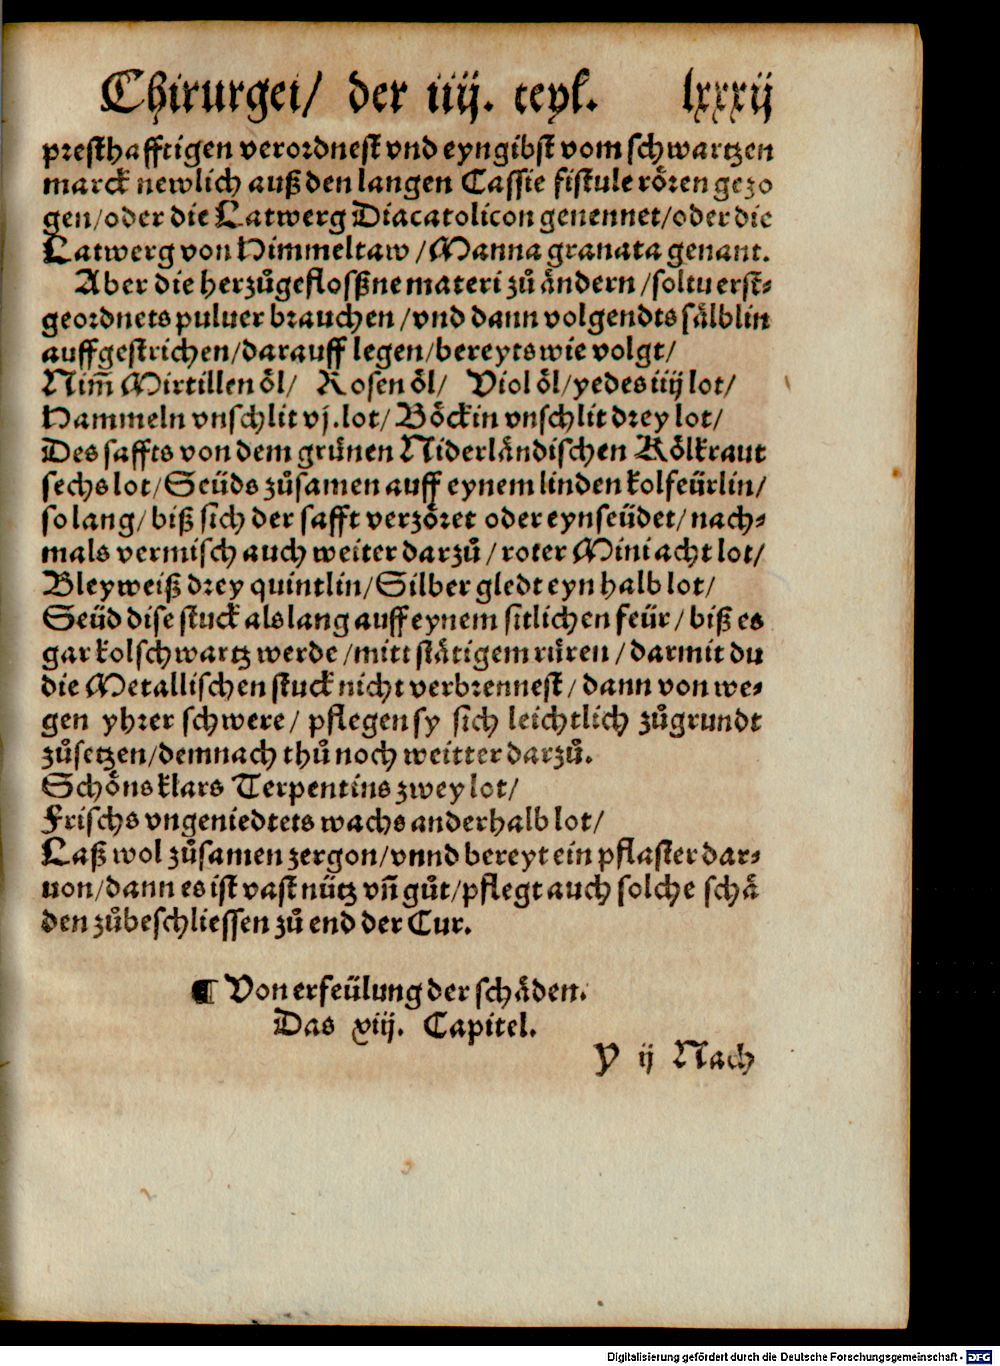 Chirurgei/ der iiij. teyl. lxxxij
presthafftigen verordnest vnd eyngibst vom schwartzen
marck newlich auß den langen Cassie fistule rören gezo
gen/oder die Latwerg Diacatolicon genennet/oder die
Latwerg von Himmeltaw/Manna granata genant.
Aber die herzůgeflossne materi zů ändern/soltu erst-
geordnets puluer brauchen/vnd dann volgendts sälblin
auffgestrichen/darauff legen/bereyts wie volgt/
Nim̃ Mirtillen öl/ Rosen öl/ Viol öl/yedes iiij lot/
Hammeln vnschlit vj.lot/Böckin vnschlit drey lot/
Des saffts von dem grünen Niderländischen Kölkraut
sechs lot/Seüds zůsamen auff eynem linden kolfeürlin/
so lang/biß sich der safft verzöret oder eynseüdet/nach-
mals vermisch auch weiter darzů/roter Mini acht lot/
Bleyweiß drey quintlin/Silber gledt eyn halb lot/
Seüd dise stuck als lang auff eynem sitlichen feür/biß es
gar kolschwartz werde/mitt stätigem rüren/darmit du
die Metallischen stuck nicht verbrennest/dann von we-
gen yhrer schwere/ pflegen sy sich leichtlich zůgrundt
zůsetzen/demnach thů noch weitter darzů.
Schöns klars Terpentins zwey lot/
Frischs vngeniedtets wachs anderhalb lot/
Laß wol zůsamen zergon/vnnd bereyt ein pflaster dar-
uon/dann es ist vast nütz vñ gůt/pflegt auch solche schä
den zůbeschliessen zů end der Cur.
¶ Von erfeülung der schäden.
Das xiij. Capitel.
Y ij Nach
Digitalisierung gefördert durch die Deutsche Forschungsgemeinschaft - DFG